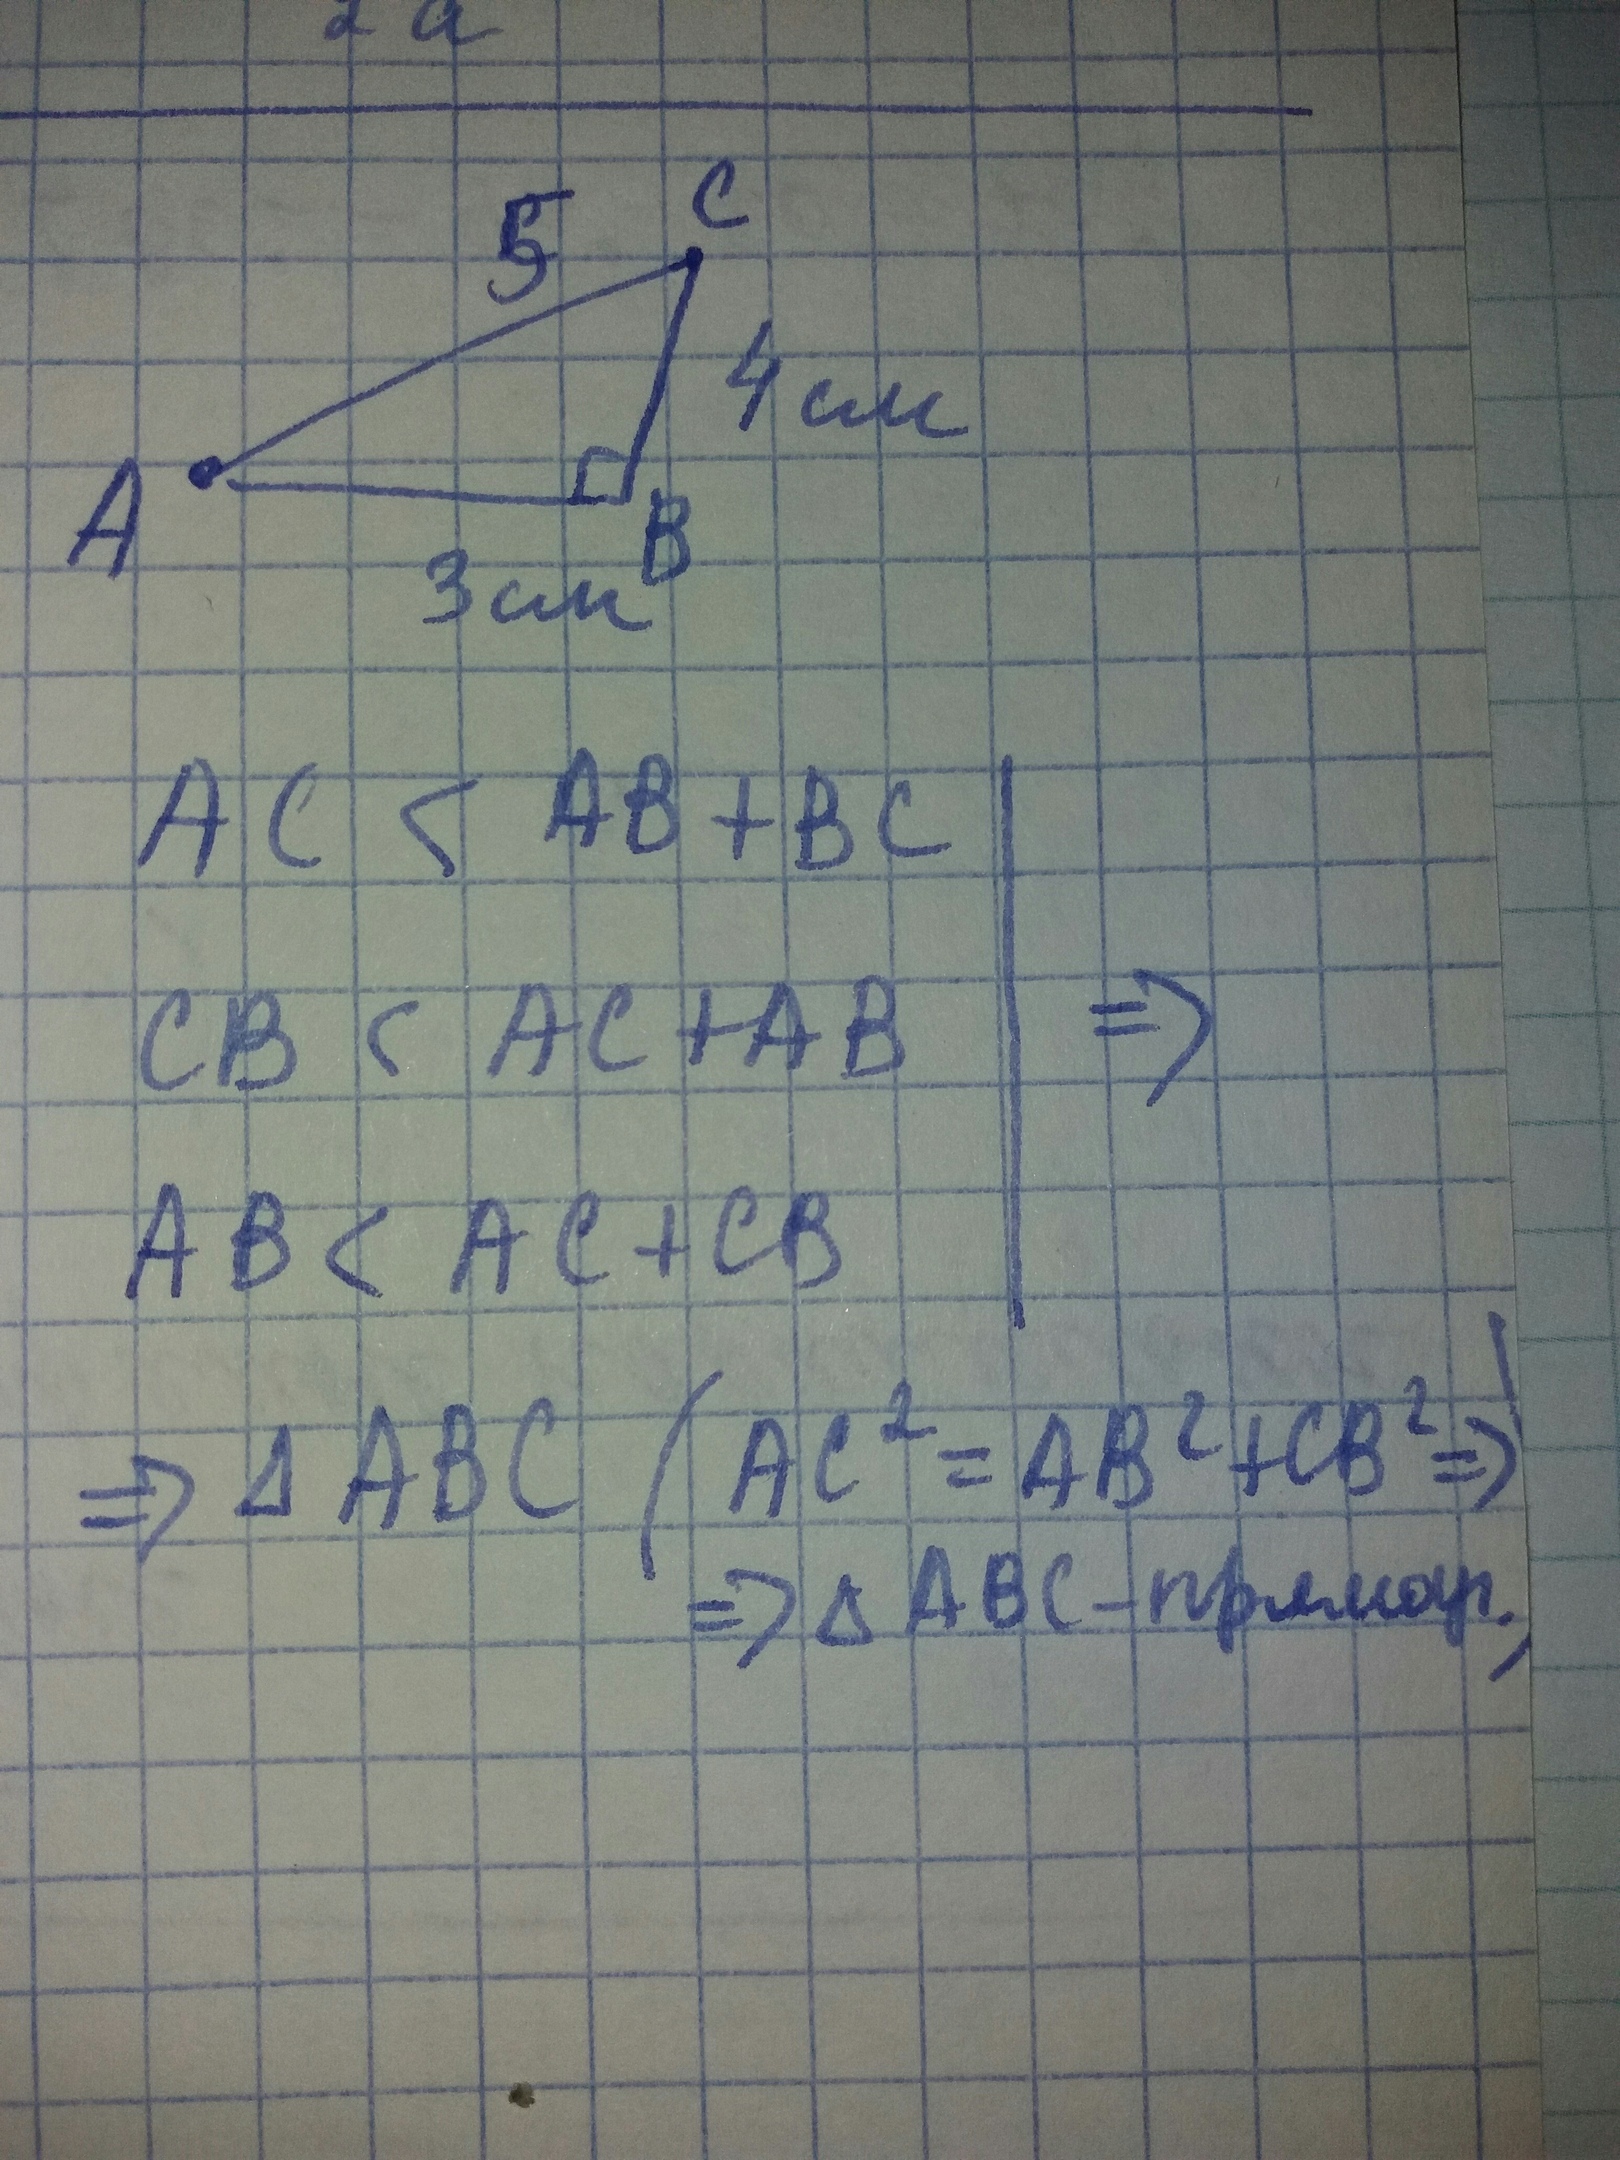 2a
C
5
4 см
A
B
3 см
AC < AB+BC
CB < AC+AB
=>
AB < AC+CB
=> Δ ABC (AC²=AB²+CB²=>
=> Δ ABC-прямоуг.)